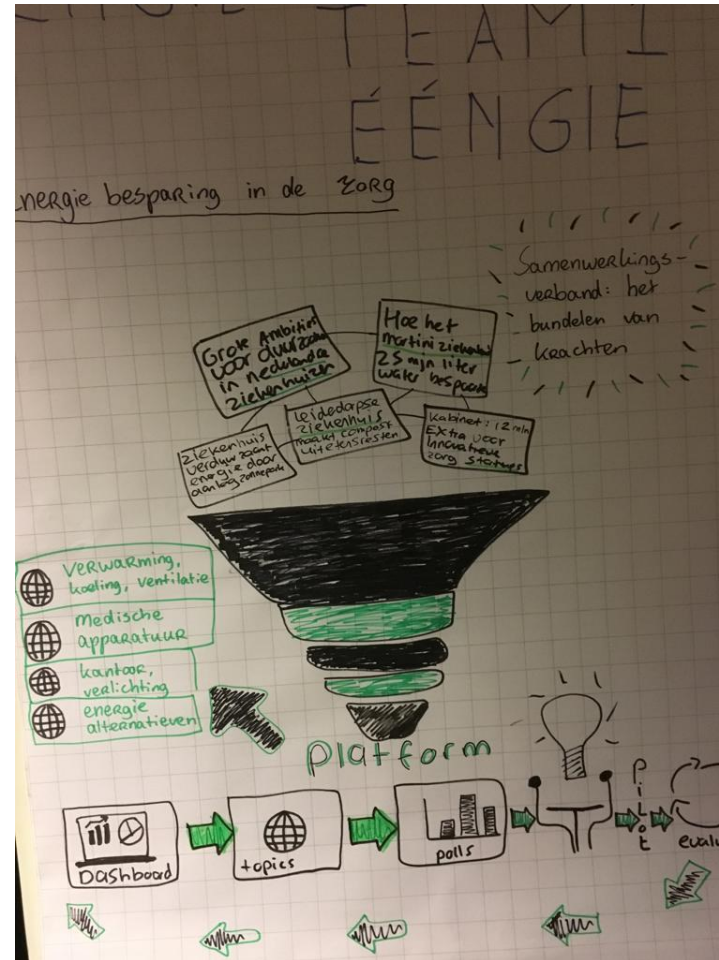 TEAM 1
ÉÉNGIE
nergie besparing in de zorg
Samenwerkings-
verband: het
bundelen van
krachten
Grote Ambities
voor duurzame
in nederlandse
ziekenhuizen
Hoe het
martini ziekenhuis
25 mjn liter
water bespaart
ziekenhuis
verduurzaamt
energie door
aanleg zonnepark
Leidedorpse
ziekenhuis
maakt compost
uit etensresten
kabinet: 12 mln
EXtra voor
innovatieve
zorg
verwarming,
koeling, ventilatie
medische
apparatuur
kantoor,
verlichting
energie
alternatieven
platform
Dashboard
topics
polls
Pilot
evalu